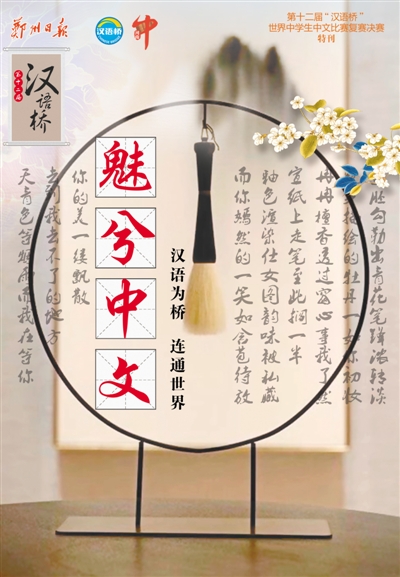 郑州日报
汉语桥
第十二届“汉语桥”
世界中学生中文比赛复赛决赛
特刊
第十二届
汉语桥
魅兮中文
汉语为桥 连通世界
胚勾勒出青花笔锋浓转淡
描绘的牡丹一如你初妆
冉冉檀香透过窗心事我了然
宣纸上走笔至此搁一半
釉色渲染仕女图韵味被私藏
而你嫣然的一笑如含苞待放
你的美一缕飘散
去到我去不了的地方
天青色等烟雨而我在等你